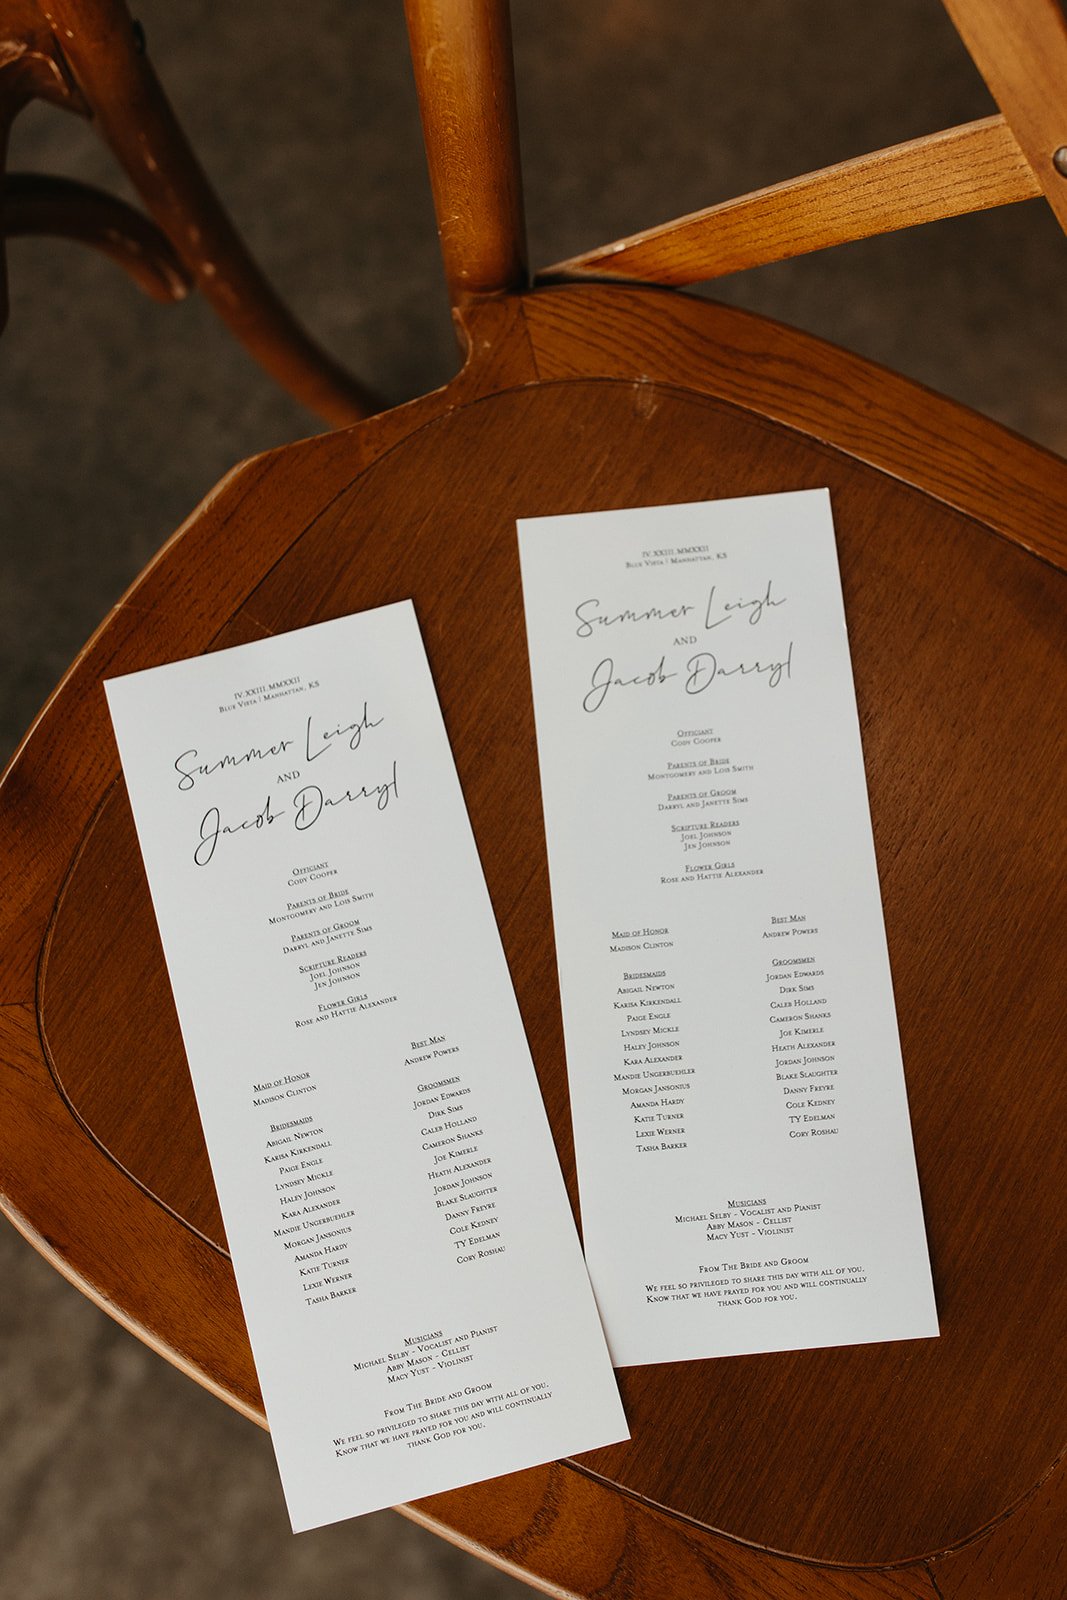 IV.XXIII.MMXXII
Blue Vista | Manhattan, KS
Summer Leigh
AND
Jacob Darryl
Officiant
Cody Cooper
Parents of Bride
Montgomery and Lois Smith
Parents of Groom
Darryl and Janette Sims
Scripture Readers
Joel Johnson
Jen Johnson
Flower Girls
Rose and Hattie Alexander
Maid of Honor
Madison Clinton
Bridesmaids
Abigail Newton
Karisa Kirkendall
Paige Engle
Lyndsey Mickle
Haley Johnson
Kara Alexander
Mandie Ungerbuehler
Morgan Jansonius
Amanda Hardy
Katie Turner
Lexie Werner
Tasha Barker
Best Man
Andrew Powers
Groomsmen
Jordan Edwards
Dirk Sims
Caleb Holland
Cameron Shanks
Joe Kimerle
Heath Alexander
Jordan Johnson
Blake Slaughter
Danny Freyre
Cole Kedney
TY Edelman
Cory Roshau
Musicians
Michael Selby - Vocalist and Pianist
Abby Mason - Cellist
Macy Yust - Violinist
From The Bride and Groom
We feel so privileged to share this day with all of you.
Know that we have prayed for you and will continually
thank God for you.
IV.XXIII.MMXXII
Blue Vista | Manhattan, KS
Summer Leigh
AND
Jacob Darryl
Officiant
Cody Cooper
Parents of Bride
Montgomery and Lois Smith
Parents of Groom
Darryl and Janette Sims
Scripture Readers
Joel Johnson
Jen Johnson
Flower Girls
Rose and Hattie Alexander
Maid of Honor
Madison Clinton
Bridesmaids
Abigail Newton
Karisa Kirkendall
Paige Engle
Lyndsey Mickle
Haley Johnson
Kara Alexander
Mandie Ungerbuehler
Morgan Jansonius
Amanda Hardy
Katie Turner
Lexie Werner
Tasha Barker
Best Man
Andrew Powers
Groomsmen
Jordan Edwards
Dirk Sims
Caleb Holland
Cameron Shanks
Joe Kimerle
Heath Alexander
Jordan Johnson
Blake Slaughter
Danny Freyre
Cole Kedney
TY Edelman
Cory Roshau
Musicians
Michael Selby - Vocalist and Pianist
Abby Mason - Cellist
Macy Yust - Violinist
From The Bride and Groom
We feel so privileged to share this day with all of you.
Know that we have prayed for you and will continually
thank God for you.